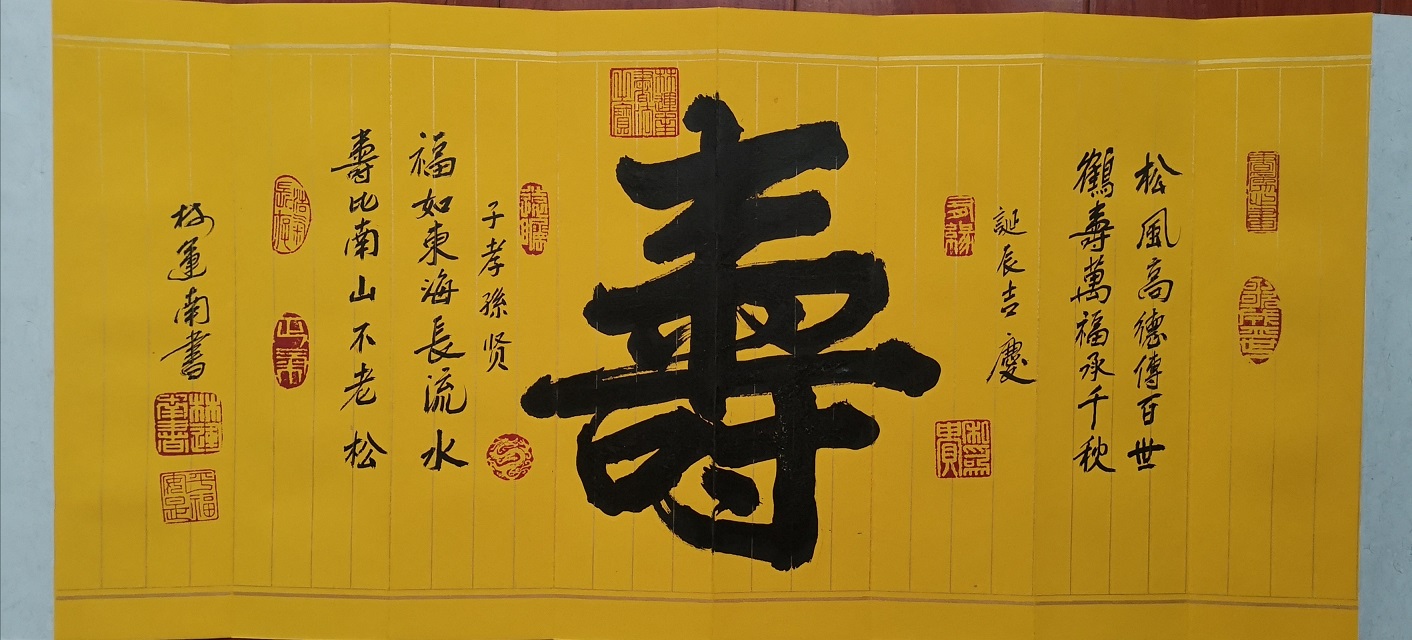 松風高德傳百世
鶴壽萬福承千秋
誕辰吉慶
壽
子孝孫贤
福如東海長流水
壽比南山不老松
林運南書
林運南書